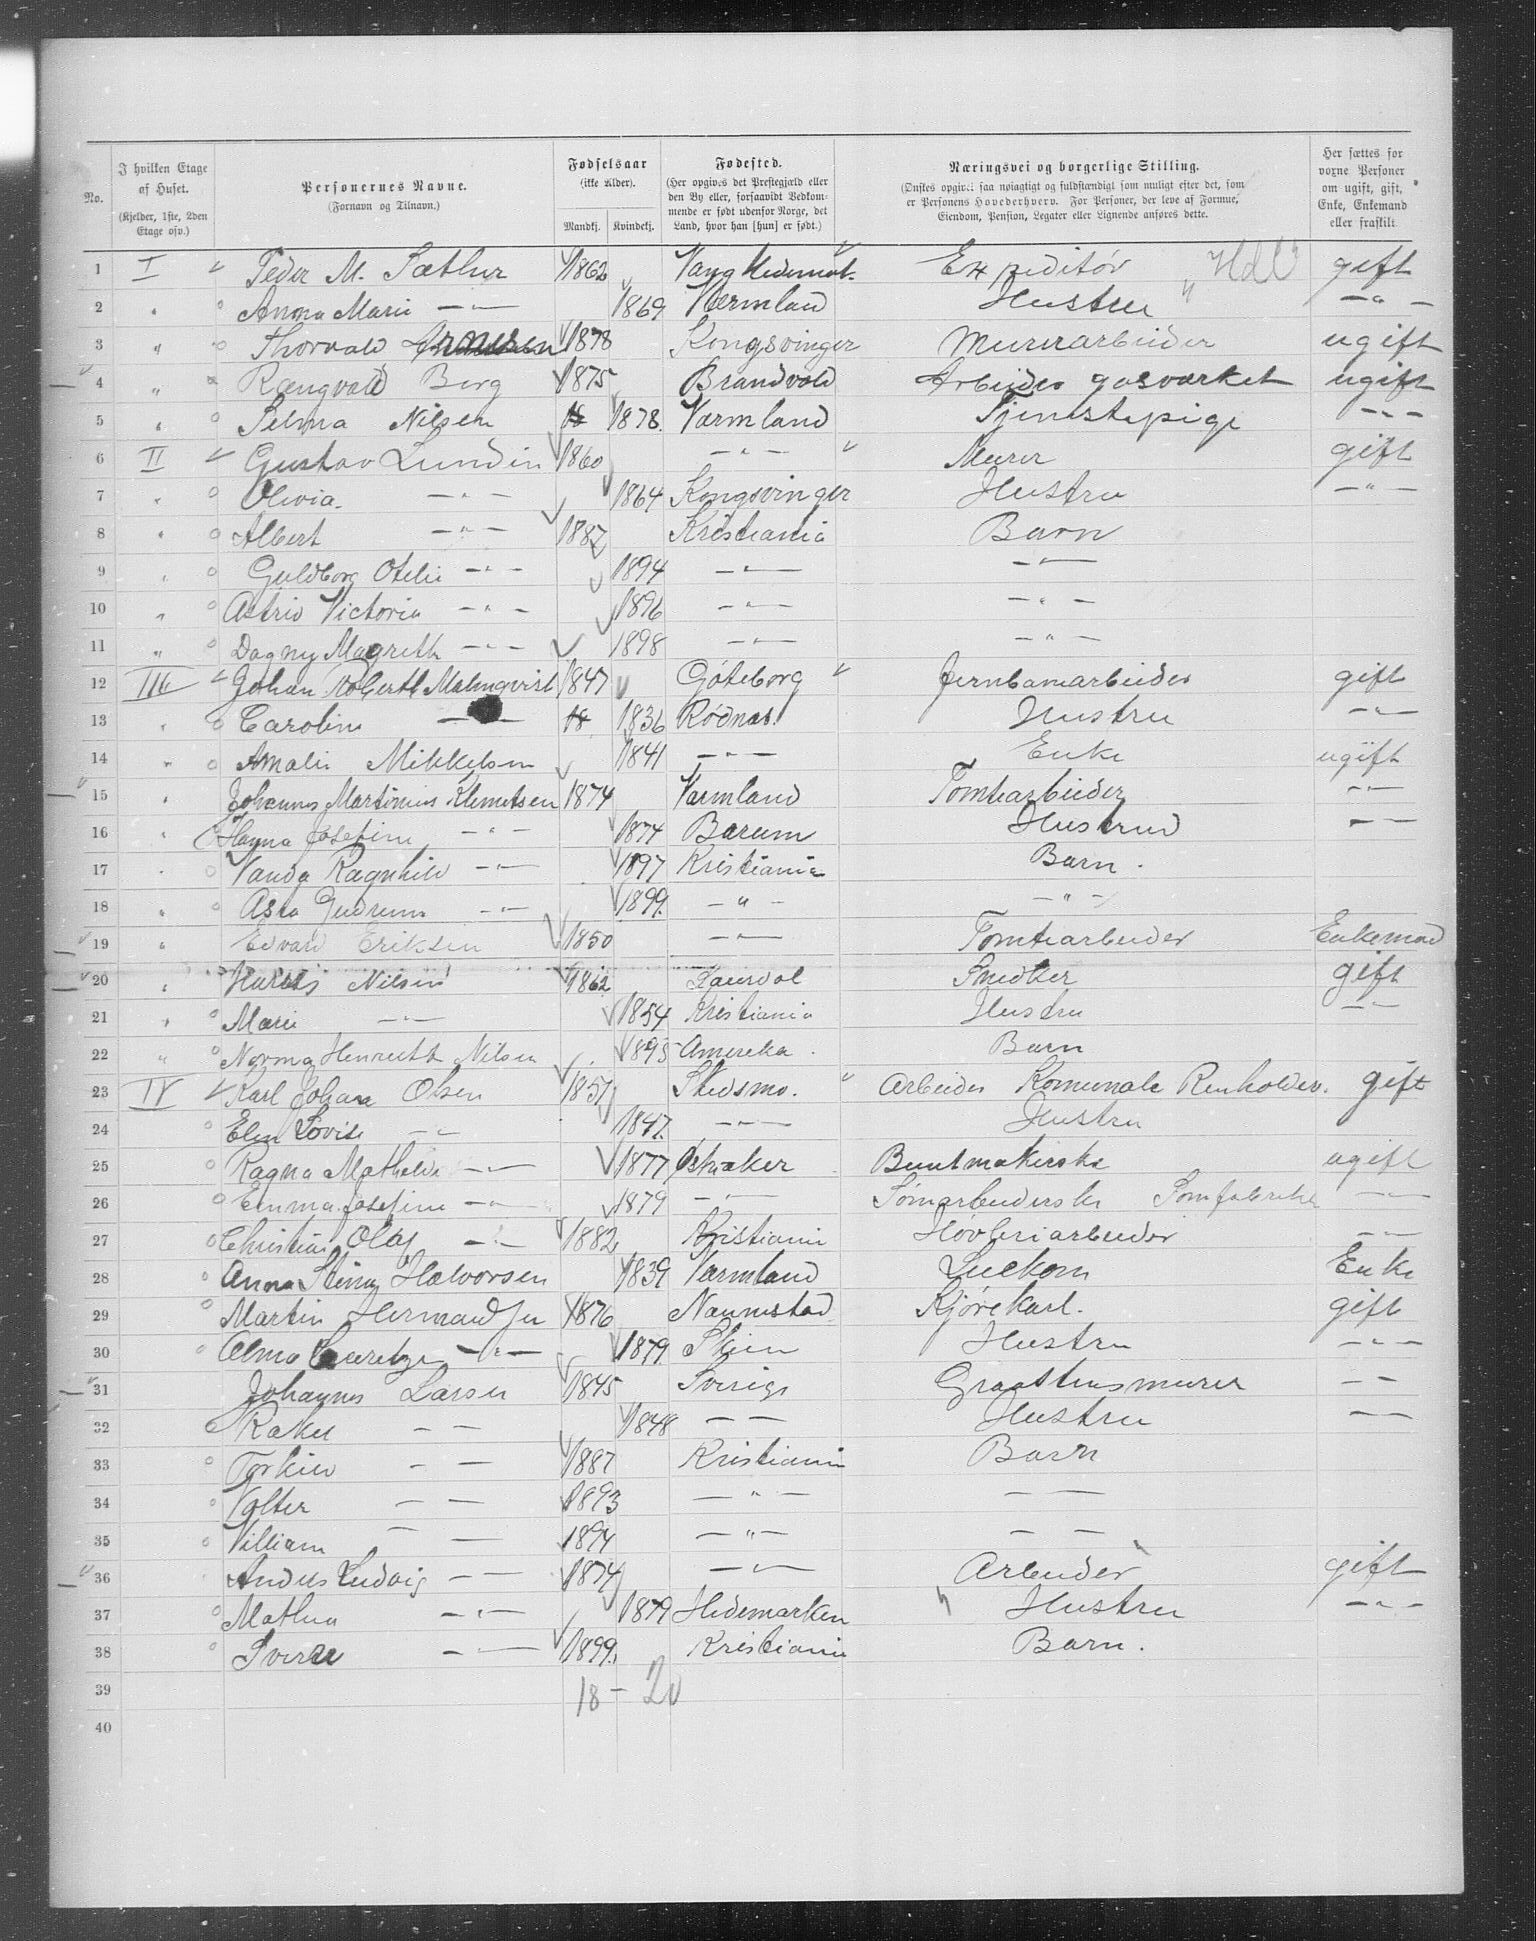 No. | I hvilken Etage af Huset. (Kjelder, 1ste, 2den Etage osv.) | Personernes Navne. (Fornavn og Tilnavn.) | Fødselsaar (ikke Alder). Mandkj. Kvindekj. | Fødested. (Her opgives det Prestegjæld eller den By eller, forsaavidt Vedkommende er født udenfor Norge, det Land, hvor han [hun] er født.) | Næringsvei og borgerlige Stilling. (Ønskes opgivet saa nøiagtigt og fuldstændigt som muligt efter det, som er Personens Hovederhverv. For Personer, der leve af Formue, Eiendom, Pension, Legater eller Lignende anføres dette. | Her sættes for voxne Personer om ugift, gift, Enke, Enkemand eller fraskilt
1 I Peder M. Sæther 1862 Vang Hedemark Expeditør gift
2 " Anna Marie — " — 1869 Værmland Hustru — " —
3 " Thorvald 1878 Kongsvinger Murerarbeider ugift
4 " Rængvald Berg 1875 Brandvold Arbeider gasværket ugift
5 " Selma Nilsen 18 1878. Værmland Tjenestepige — " —
6 II Gustav Lundin 1860 — " — Murer gift
7 " Olivia. — " — 1864 Kongsvinger Hustru — " —
8 " Albert — " — 1887 Kristiania Barn
9 " Guldborg Otelie — " — 1894 — " — — " —
10 " Astrid Victoria — " — 1896 — " — — " —
11 " Dagny Magreth — " — 1898 — " — — " —
12 III Johan Roberth Malmqvist 1847 Göteborg Jernbanearbeider gift
13 " Caroline — — 18 1836 Rødnæs. Hustru — " —
14 " Amalie Mikkelsen 1841 — " — Enke ugift
15 " Johannes Martinius Klemetsen 1874 Værmland Tomtearbeider — " —
16 " Hagna Josefine — " — 1874 Bærum Hustrud — " —
17 " Vanda Ragnhild — " — 1897 Kristiania Barn.
18 " Asta Gudrun — " — 1899. — " — — " —
19 " Edvard Eriksen 1850 — " — Tomtearbeider Enkemand
20 " Nilsen 1862 Laurdal Smedker gift
21 " Marie — " — 1854 Kristiania Hustru — " —
22 " Norma Henriette Nilsen 1895 Amereka. Barn
23 IV Karl Johan Olsen 1857 Skedsmo. Arbeider Komunale Renholder. gift
24 Elen Lovise — " — 1847. — " — Hustru
25 Ragna Mathelde — " — 1877 Østraker Buntmakerske ugift
26 Emma Josefine — " — 1879 — " — Sømarbeiderske Somfabrikk — " —
27 Christian Olaf — " — 1882 Kristiania Høvleriarbeider — " —
28 Anna Stina Halvorsen 1839 Værmland Enke
29 Martin Hermandsen 1876 Nannestad Kjørekarl. gift
30 Alma Lauretze — " — 1879 Skien Hustru — " —
31 Johannes Larsen 1845 Sverige Graastensmurer — —
32 Rakel — — 1848 — — Hustru — —
33 Torkild — — 1887 Kristiania Barn
34 Valter — — 1893 — " — — —
35 Villiam — — 1894 — " — — —
36 Anders Ludvig — — 1874 — " — Arbeider gift
37 Mathea — " — 1879 Hedemarken Hustru — " —
38 Sverre — " — 1899. Kristiania Barn.
39 18 - 20
40